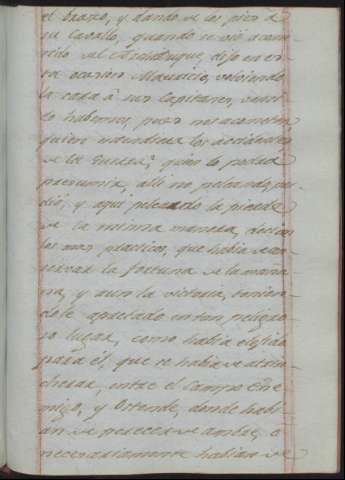 el brazo, y dando de los pies á
su Caballo, quando se vió acome-
tido del Archiduque, dijo en es-
ta ocasion Mauricio, volviendo
la cara á sus Capitanes, venci-
do habemos, pues nos acometen,
quien entendiera los accidentes
de la Guerra? quien lo podrá
presumir, alli no peleando, per-
dió, y aqui peleando lo pierde
de la misma manera, decian
los mas practicos, que habia de
la fortuna de la maña-
na, y aun la victoria, tenien-
dole apretado en tan peligro-
so lugar, como habia elegido
para él, que se habia de atrin-
cherar, entre el Campo Ene-
migo, y Ostende, donde habi-
an de perecer de ambre, ó
necesariamente habian de